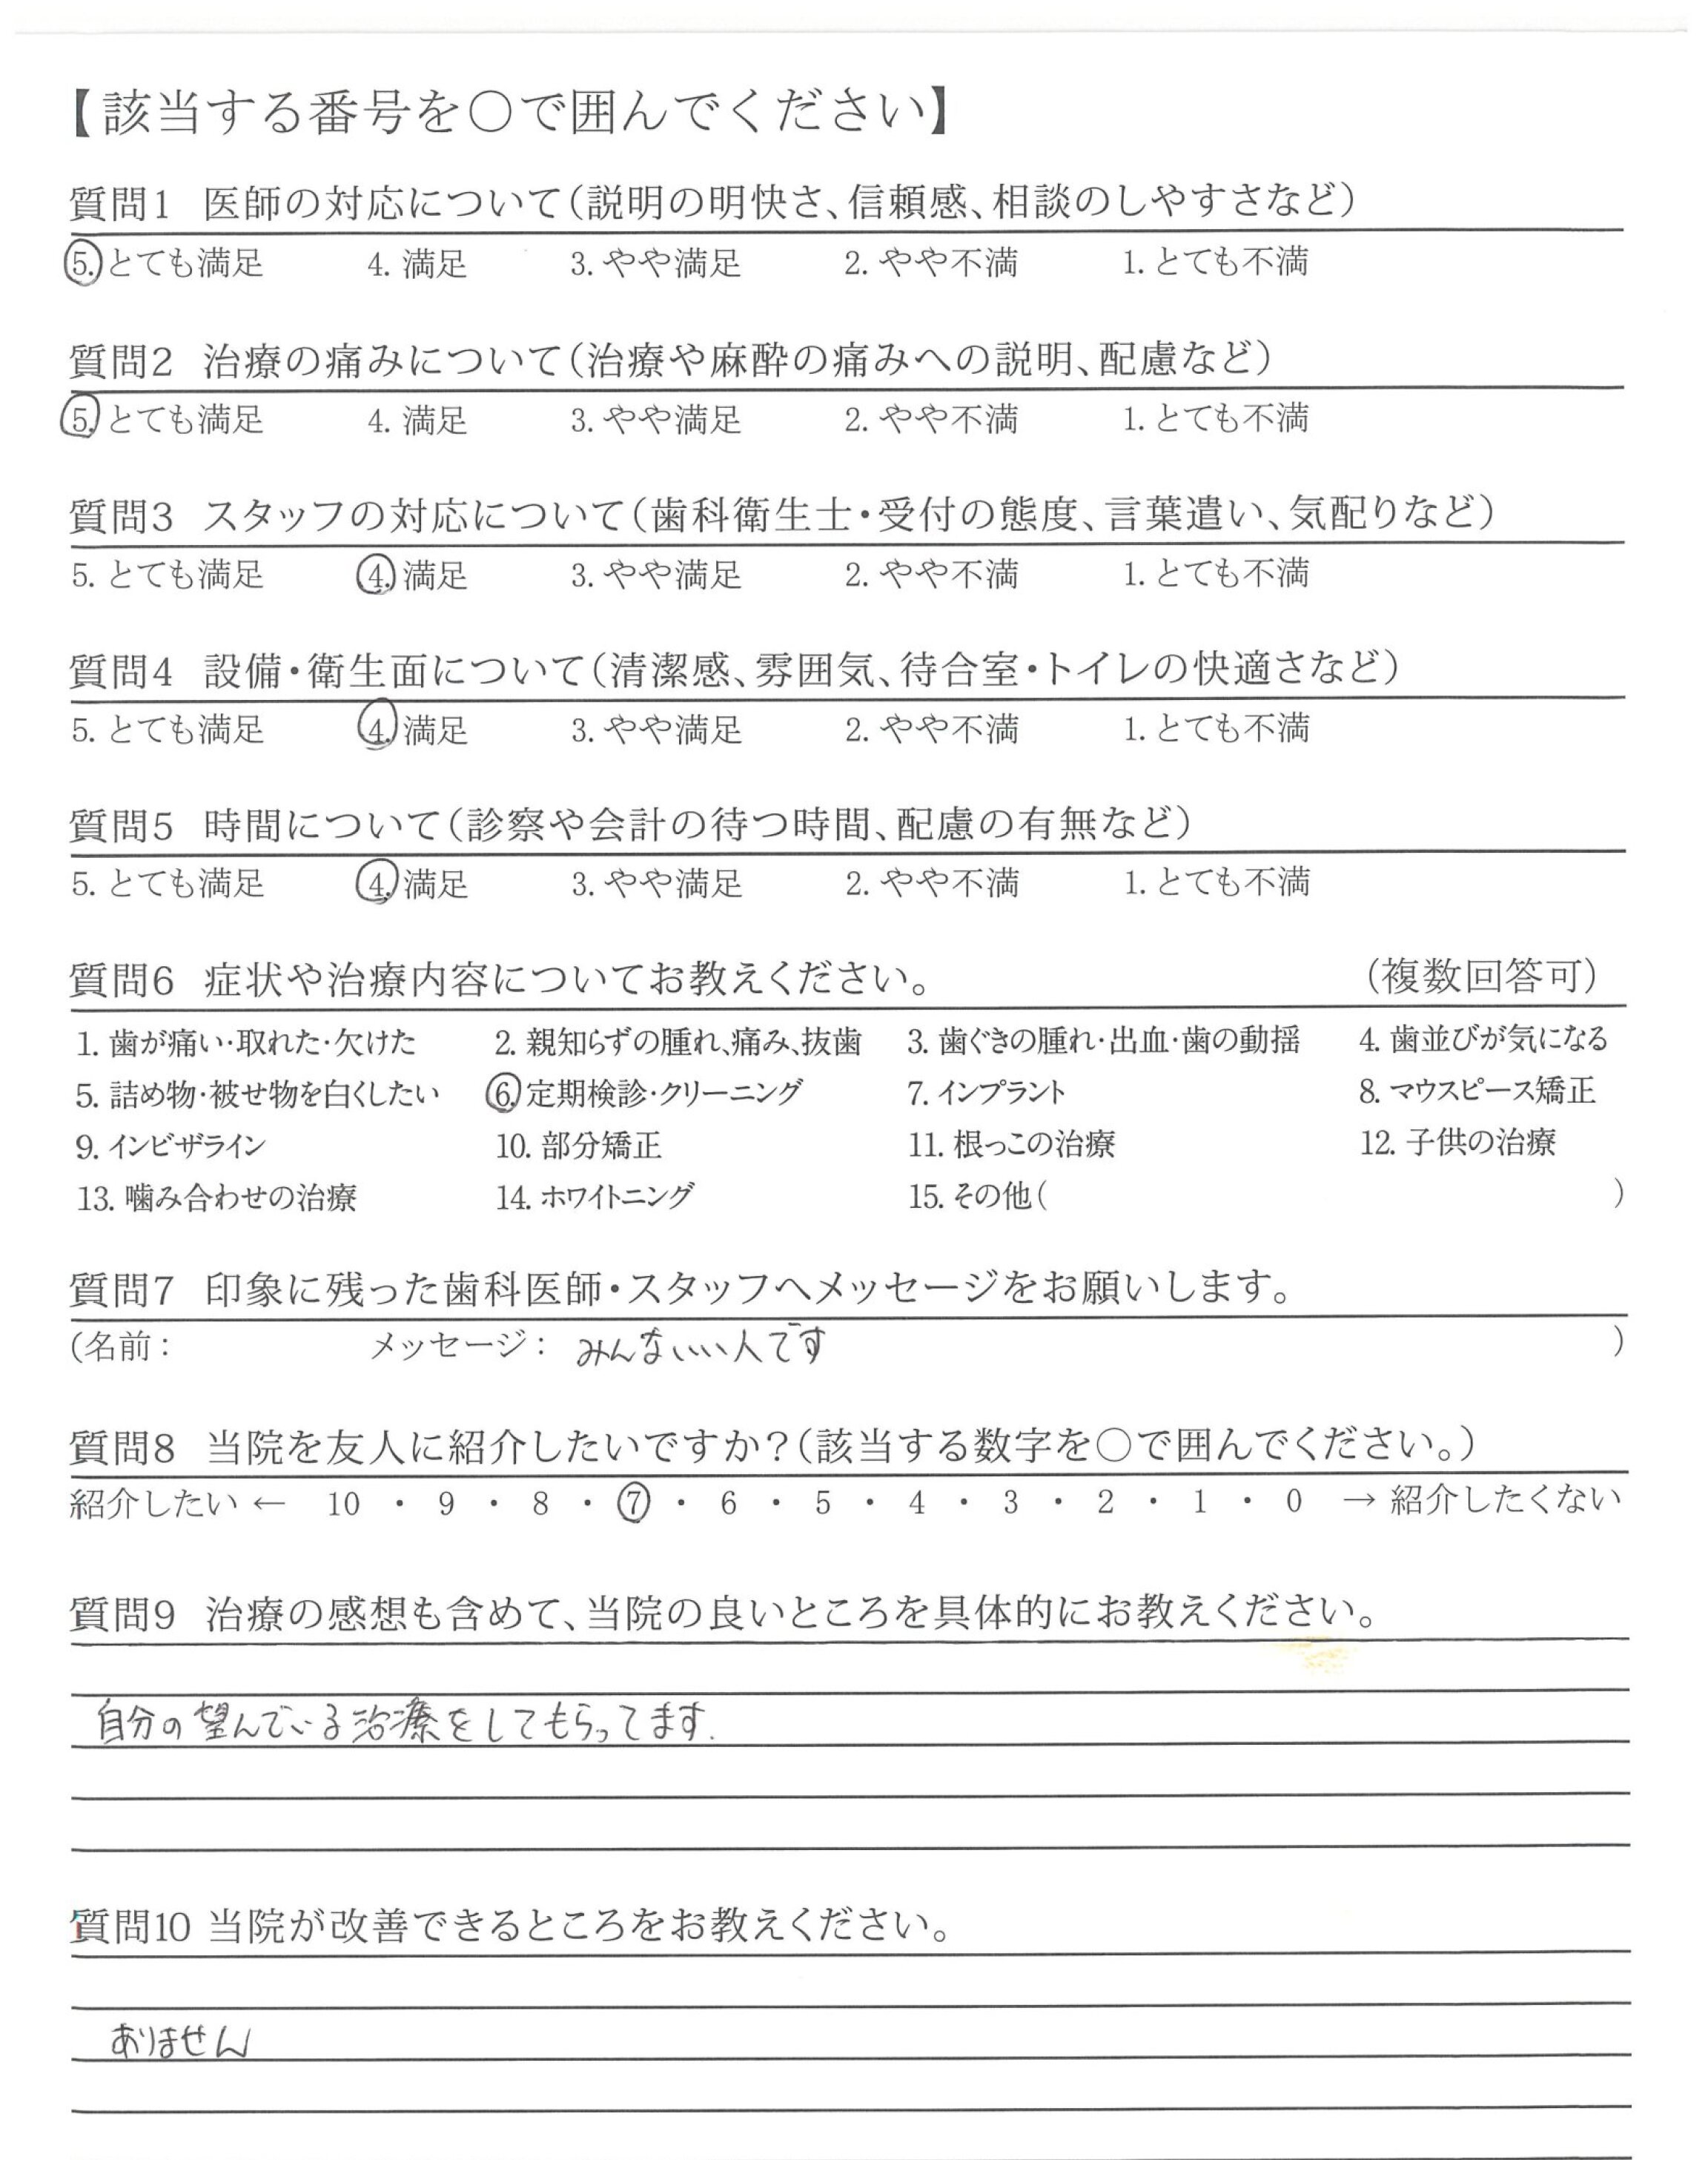 【該当する番号を○で囲んでください】
質問1 医師の対応について（説明の明快さ、信頼感、相談のしやすさなど）
5. とても満足 4. 満足 3. やや満足 2. やや不満 1. とても不満
質問2 治療の痛みについて（治療や麻酔の痛みへの説明、配慮など）
5. とても満足 4. 満足 3. やや満足 2. やや不満 1. とても不満
質問3 スタッフの対応について（歯科衛生士・受付の態度、言葉遣い、気配りなど）
5. とても満足 4. 満足 3. やや満足 2. やや不満 1. とても不満
質問4 設備・衛生面について（清潔感、雰囲気、待合室・トイレの快適さなど）
5. とても満足 4. 満足 3. やや満足 2. やや不満 1. とても不満
質問5 時間について（診察や会計の待つ時間、配慮の有無など）
5. とても満足 4. 満足 3. やや満足 2. やや不満 1. とても不満
質問6 症状や治療内容についてお教えください。 （複数回答可）
1. 歯が痛い・取れた・欠けた 2. 親知らずの腫れ、痛み、抜歯 3. 歯ぐきの腫れ・出血・歯の動揺 4. 歯並びが気になる
5. 詰め物・被せ物を白くしたい 6. 定期検診・クリーニング 7. インプラント 8. マウスピース矯正
9. インビザライン 10. 部分矯正 11. 根っこの治療 12. 子供の治療
13. 噛み合わせの治療 14. ホワイトニング 15. その他（ ）
質問7 印象に残った歯科医師・スタッフへメッセージをお願いします。
（名前： メッセージ： みんないい人です ）
質問8 当院を友人に紹介したいですか？（該当する数字を○で囲んでください。）
紹介したい ← 10 ・ 9 ・ 8 ・ 7 ・ 6 ・ 5 ・ 4 ・ 3 ・ 2 ・ 1 ・ 0 → 紹介したくない
質問9 治療の感想も含めて、当院の良いところを具体的にお教えください。
自分の望んでいる治療をしてもらってます.
質問10 当院が改善できるところをお教えください。
ありません